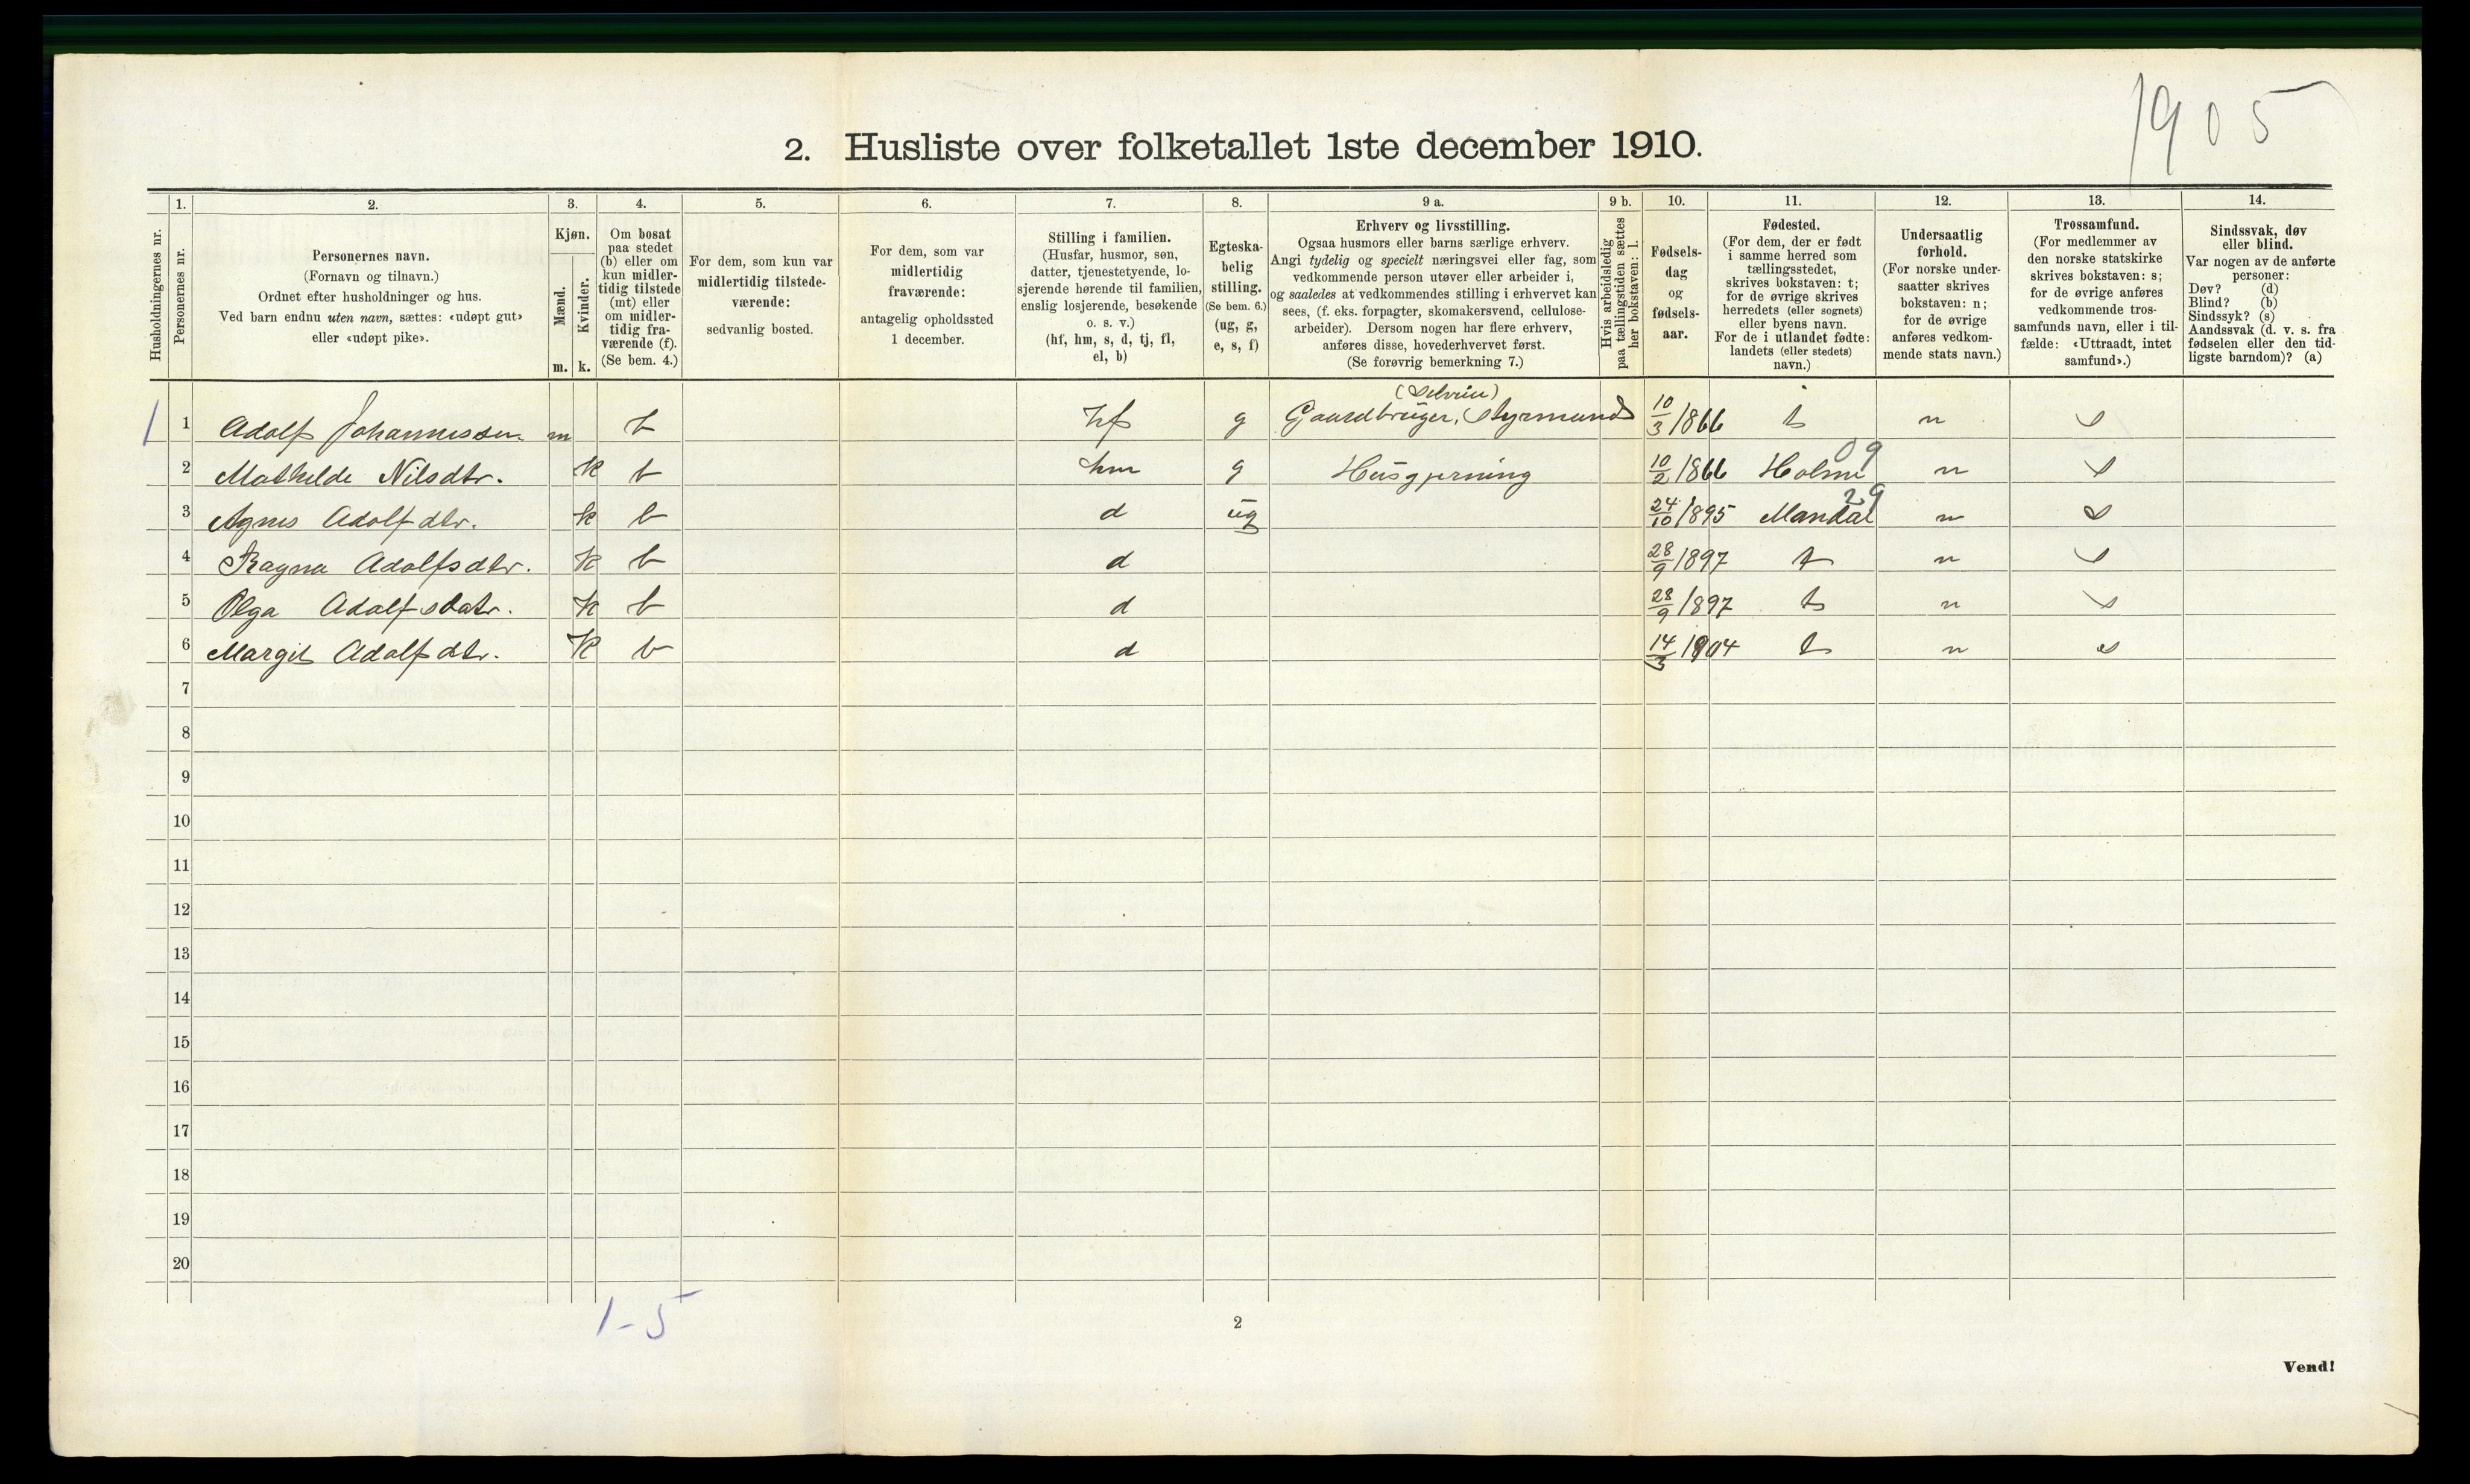 1905
2. Husliste over folketallet 1ste december 1910.
Husholdningernes nr.
1.
Personernes nr.
2.
Personernes navn.
(Fornavn og tilnavn.)
Ordnet efter husholdninger og hus.
Ved barn endnu uten navn, sættes: «udøpt gut»
eller «udøpt pike».
3.
Kjøn.
Mænd.
Kvinder.
m. k.
4.
Om bosat
paa stedet
(b) eller om
kun midler-
tidig tilstede
(mt) eller
om midler-
tidig fra-
værende (f).
(Se bem. 4.)
5.
For dem, som kun var
midlertidig tilstede-
værende:
sedvanlig bosted.
6.
For dem, som var
midlertidig
fraværende:
antagelig opholdssted
1 december.
7.
Stilling i familien.
(Husfar, husmor, søn,
datter, tjenestetyende, lo-
sjerende hørende til familien,
enslig losjerende, besøkende
o. s. v.)
(hf, hm, s, d, tj, fl,
el, b)
8.
Egteska-
belig
stilling.
(Se bem. 6.)
(ug, g,
e, s, f)
9 a.
Erhverv og livsstilling.
Ogsaa husmors eller barns særlige erhverv.
Angi tydelig og specielt næringsvei eller fag, som
vedkommende person utøver eller arbeider i,
og saaledes at vedkommendes stilling i erhvervet kan
sees, (f. eks. forpagter, skomakersvend, cellulose-
arbeider). Dersom nogen har flere erhverv,
anføres disse, hovederhvervet først.
(Se forøvrig bemerkning 7.)
9 b.
Hvis arbeidsledig
paa tællingstiden sættes
her bokstaven: l.
10.
Fødsels-
dag
og
fødsels-
aar.
11.
Fødested.
(For dem, der er født
i samme herred som
tællingsstedet,
skrives bokstaven: t;
for de øvrige skrives
herredets (eller sognets)
eller byens navn.
For de i utlandet fødte:
landets (eller stedets)
navn.)
12.
Undersaatlig
forhold.
(For norske under-
saatter skrives
bokstaven: n;
for de øvrige
anføres vedkom-
mende stats navn.)
13.
Trossamfund.
(For medlemmer av
den norske statskirke
skrives bokstaven: s;
for de øvrige anføres
vedkommende tros-
samfunds navn, eller i til-
fælde: «Uttraadt, intet
samfund».)
14.
Sindssvak, døv
eller blind.
Var nogen av de anførte
personer:
Døv? (d)
Blind? (b)
Sindssyk? (s)
Aandssvak (d. v. s. fra
fødselen eller den tid-
ligste barndom)? (a)
1 1 Adolf Johannessen m b hf g Gaardbruger, Styrmand 10/3 1866 t n s
2 Mathilde Nilsdtr. k b hm g Husgjerning 10/2 1866 Holme 09 n s
3 Agnes Adolfdtr. k b d ug 24/10 1895 Mandal 29 n s
4 Ragna Adolfsdtr. k b d 28/9 1897 t n s
5 Olga Adolfsdatr. k b d 28/9 1897 t n s
6 Margit Adolfdtr. k b d 14/3 1904 t n s
7
8
9
10
11
12
13
14
15
16
17
18
19
20
1-5
2
Vend!